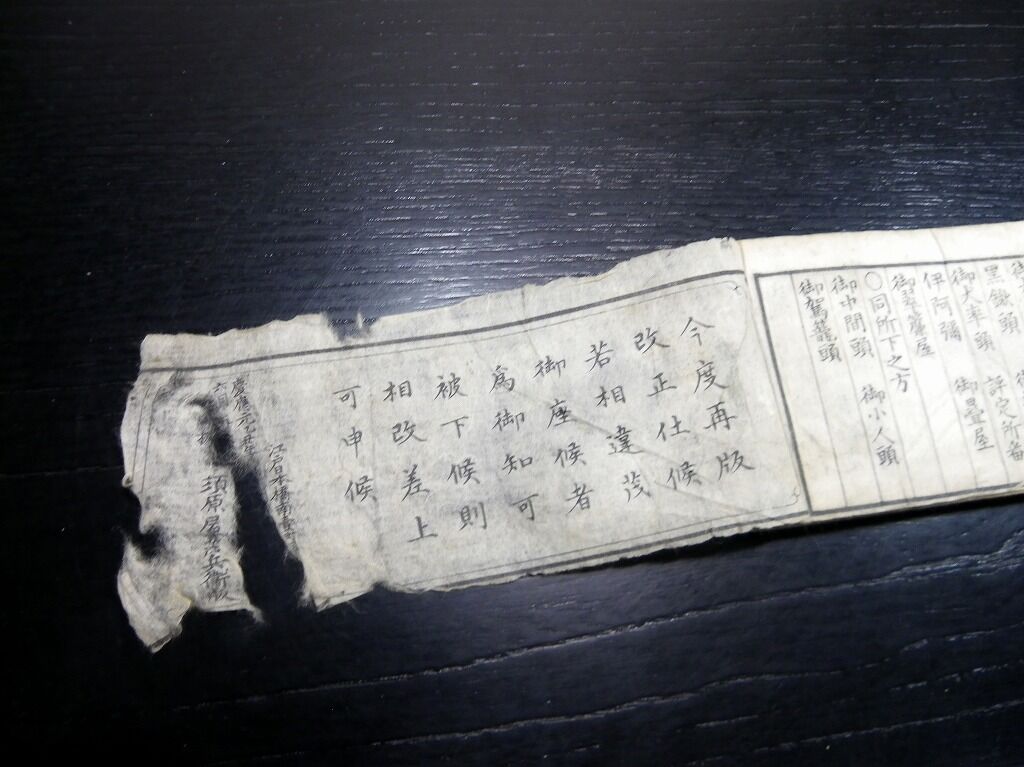 黒鍬頭
御大率頭 評定所番
伊阿彌 御畳屋
御翠簾屋
〇同所下之方
御中間頭 御小人頭
御駕籠頭
今度再版
改正仕候
若相違茂
御座候者
為御知可
被下候則
相改差上
可申候
江戸日本橋南壹
慶應元丑年
六月
須原屋茂兵衛版